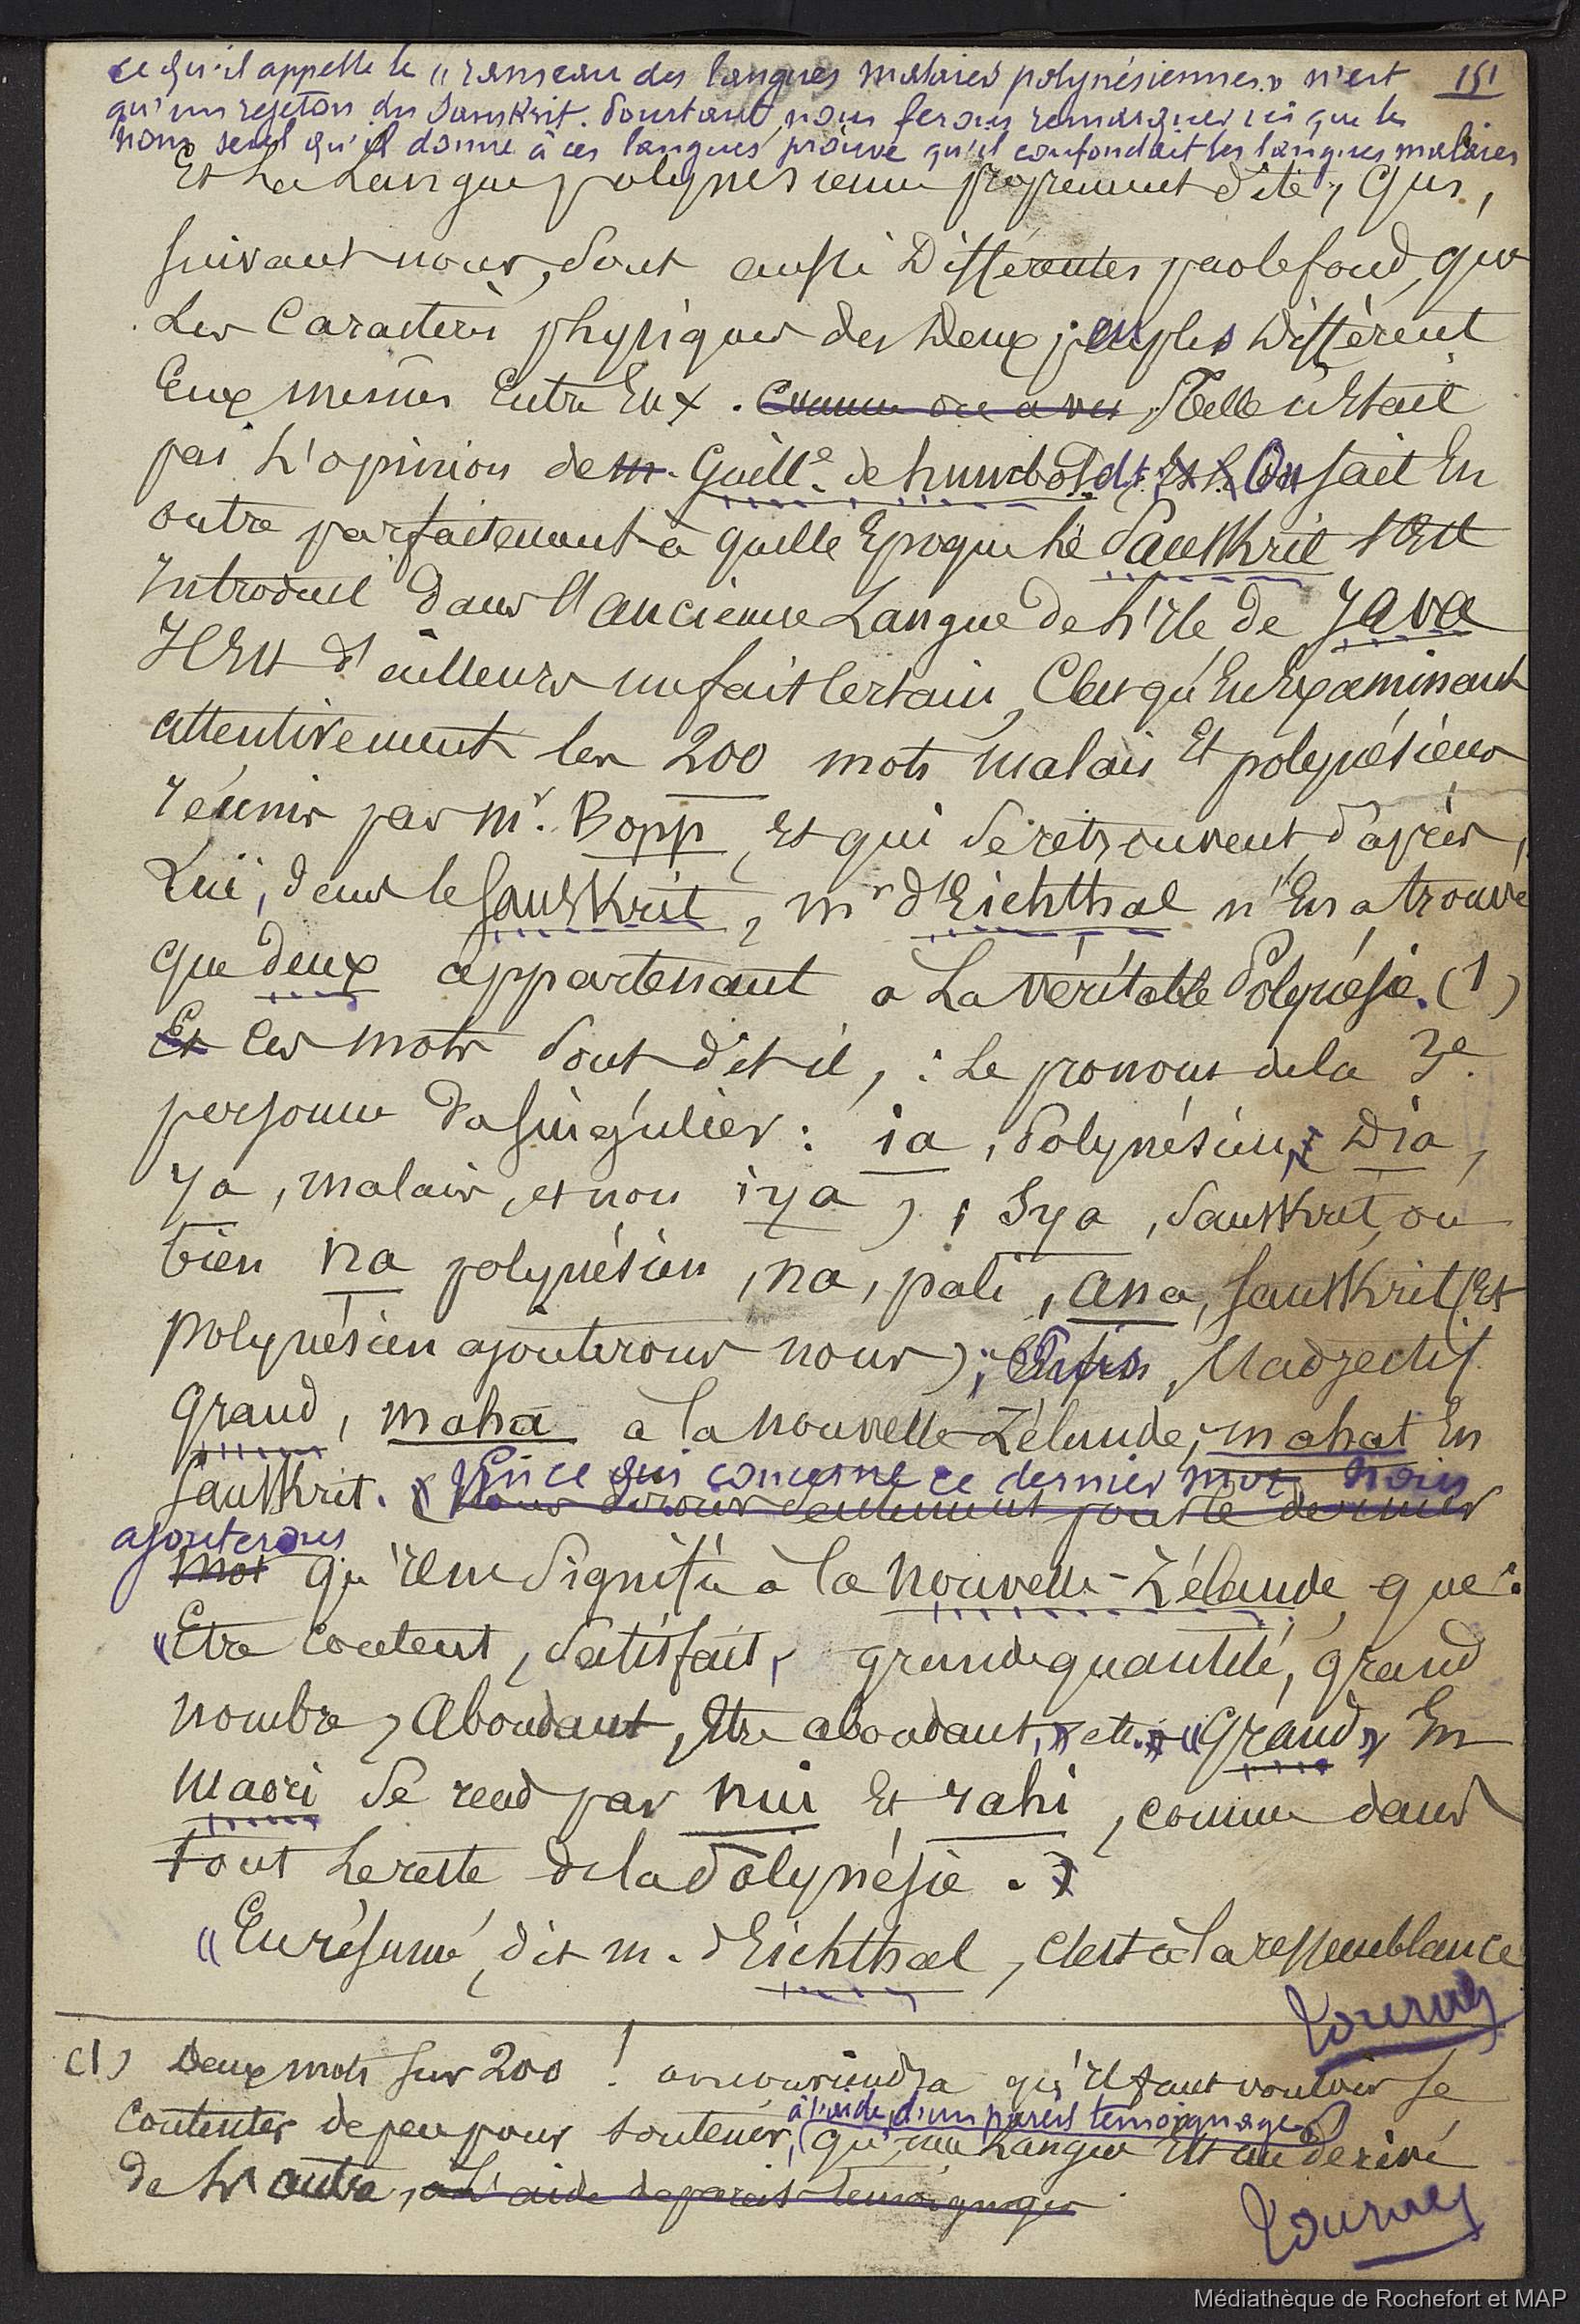 ce qu'il appelle le « rameau des langues malaies polynésiennes » n'est 151
qu'un rejeton du Sanskrit. Pourtant, nous ferons remarquer ici que le
nom seul qu'il donne à ces langues prouve qu'il confondait les langues malaies
Et La Langue polynésienne proprement dite, qui,
suivant nous, sont aussi Différentes par le fond, que
Les Caractères physiques des Deux peuples Diffèrent
Eux mêmes Entre Eux. Telle n'Etait
pas L'opinion de m. Guill.e de humboldt; On sait En
outre parfaitement à quelle Epoque le Sanskrit s'Est
Introduit dans l'ancienne Langue de L'Ile de Java
Il Est d'ailleurs un fait Certain, C'est qu'En Examinant
attentivement les 200 mots malais Et polynésiens
réunis par Mr. Bopp, Et qui se retrouvent, d'après
Lui, dans le Sanskrit, Mr d'Eichthal n'En a trouvé
que deux appartenant à La véritable Polynésie. (1)
Et Ces mots sont dit-il, : Le pronom de la 3e
personne du singulier : ia, Polynésien, Dia,
ya, malais, et non iya ) ; Sya, Sanskrit, ou
bien na polynésien, na, pali, ana, Sanskrit (Et
polynésien ajouterons nous) ; Enfin, l'adjectif
Grand, maha à la nouvelle Zélande, mahat En
Sanskrit. En ce qui concerne ce dernier mot, nous
Nous dirons seulement pour le dernier
ajouterons
mot qu'il ne signifie à la Nouvelle-Zélande que :
« Etre Content, Satisfait, grande quantité, grand
nombre, Abondant, Etre abondant, » etc. « Grand » En
Maori se rend par nui Et rahi, comme dans
tout Le reste de la Polynésie.
« En résumé, dit m. d'Eichthal, C'est à la ressemblance
Tournez
(1) Deux mots sur 200 ! on conviendra qu'il faut vouloir se
Contenter de peu pour soutenir,
à l'aide d'un pareil témoignage,
qu'une Langue Est un dérivé
de L'autre, à L'aide de pareils témoignages
Tournez
Médiathèque de Rochefort et MAP